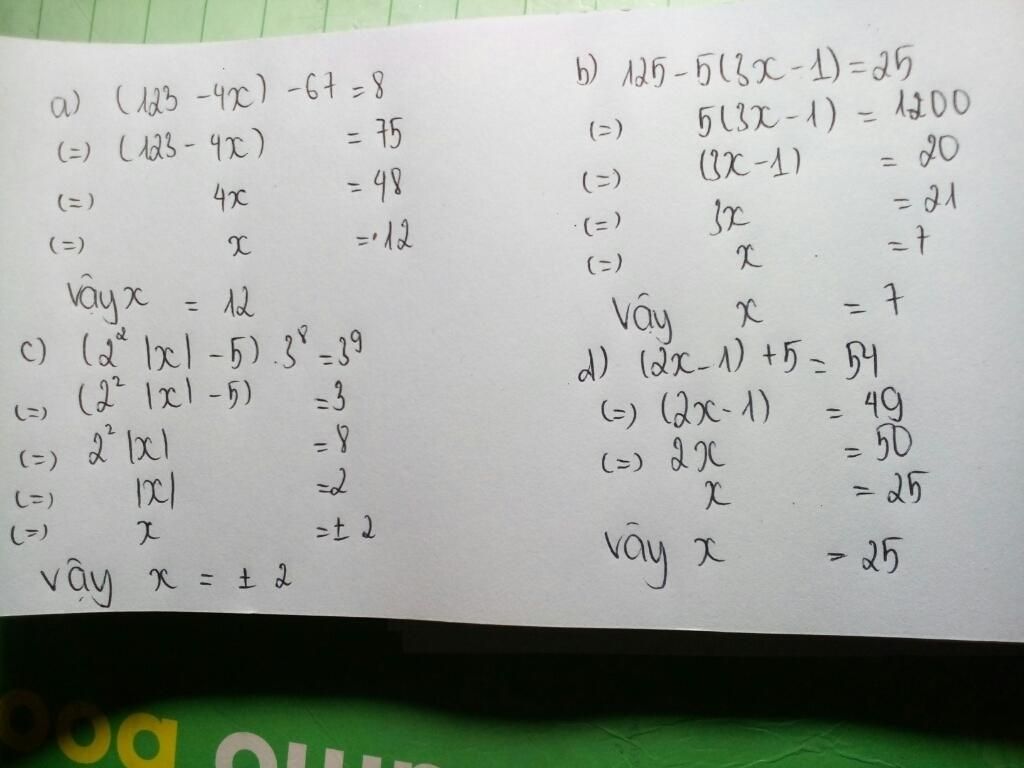 a) (123 - 4x) - 67 = 8
(=) (123 - 4x) = 75
(=) 4x = 48
(=) x = 12
Vậy x = 12
c) (2² |x| - 5) . 3⁸ = 3⁹
(=) (2² |x| - 5) = 3
(=) 2² |x| = 8
(=) |x| = 2
(=) x = ± 2
Vậy x = ± 2
b) 125 - 5(3x - 1) = 25
(=) 5(3x - 1) = 1200
(=) (3x - 1) = 20
(=) 3x = 21
(=) x = 7
Vậy x = 7
d) (2x - 1) + 5 = 54
(=) (2x - 1) = 49
(=) 2x = 50
x = 25
Vậy x = 25